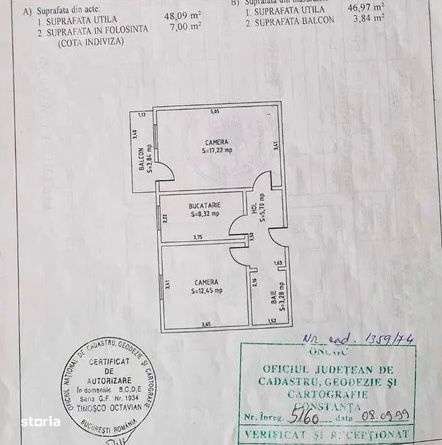 A) Suprafata din acte
1. SUPRAFATA UTILA 48,09 m²
2. SUPRAFATA IN FOLOSINTA 7,00 m²
(COTA INDIVIZA)
B) Suprafata din
1. SUPRAFATA UTILA 46,97 m²
2. SUPRAFATA BALCON 3,84 m²
1,13
5,05
3,40
BALCON
S=3,84 mp
CAMERA
S=17,22 mp
3,41
BUCATARIE
S=8,32 mp
2,22
3,75
HOL
S=5,70 mp
CAMERA
S=12,45 mp
3,41
3,65
BAIE
S=3,28 mp
2,16
1,52
Nr. cad. 1359/74
OFICIUL NATIONAL DE CADASTRU, GEODEZIE SI CARTOGRAFIE
CERTIFICAT
DE
AUTORIZARE
In domeniile B.C.D.E
Seria G.F. Nr. 1934
TIMOSCO OCTAVIAN
BUCURESTI ROMANIA
OFICIUL JUDETEAN DE
CADASTRU, GEODEZIE ŞI
CARTOGRAFIE
CONSTANTA
Nr. înreg. 5160 data 08.09.99
VERIFICAT ŞI RECEPTIONAT
storia